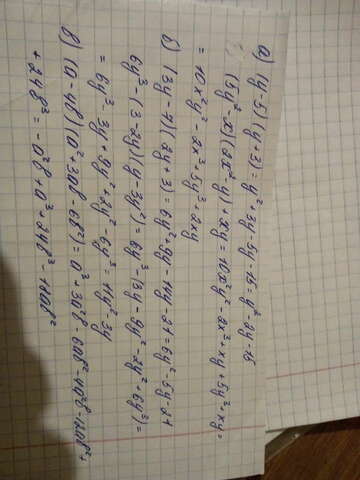 а) (y-5)(y+3) = y²+3y-5y-15 = y²-2y-15
(5y²-x)(2x²-y)+xy = 10x²y²-2x³+xy+5y³+xy =
= 10x²y²-2x³+5y³+2xy
б) (3y-7)(2y+3) = 6y²+9y-14y-21 = 6y²-5y-21
6y³-(3-2y)(y-3y²) = 6y³-(3y-9y²-2y²+6y³) =
= 6y³-3y+9y²+2y²-6y³ = 11y²-3y
в) (a-4b)(a²+3ab-6b²) = a³+3a²b-6ab²-4a²b-12ab²+
+24b³ = -a²b+a³+24b³-18ab²